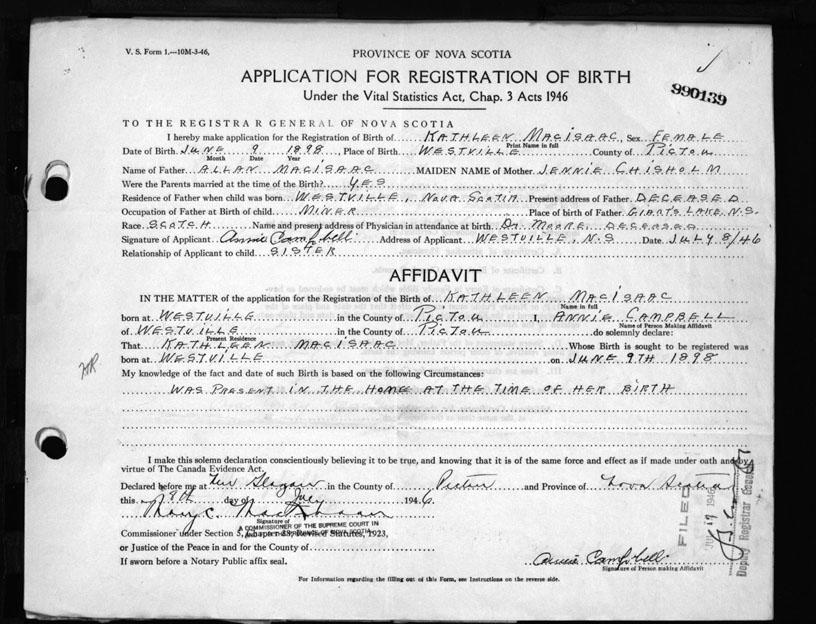 V. S. Form 1.—10M-3-46,
PROVINCE OF NOVA SCOTIA
990139
APPLICATION FOR REGISTRATION OF BIRTH
Under the Vital Statistics Act, Chap. 3 Acts 1946
TO THE REGISTRAR GENERAL OF NOVA SCOTIA
I hereby make application for the Registration of Birth of KATHLEEN MACISAAC, Sex FEMALE
Print Name in full
Date of Birth JUNE 9 1898, Place of Birth WESTVILLE County of PICTOU
Month Date Year
Name of Father ALLAN MACISAAC MAIDEN NAME of Mother JENNIE CHISHOLM
Were the Parents married at the time of the Birth? YES
Residence of Father when child was born WESTVILLE, NOVA SCOTIA Present address of Father DECEASED
Occupation of Father at Birth of child MINER Place of birth of Father GIANTS LAKE, N.S.
Race SCOTCH Name and present address of Physician in attendance at birth DR MOORE, DECEASED
Signature of Applicant Annie Campbell Address of Applicant WESTVILLE, N.S Date JULY 8/46
Relationship of Applicant to child SISTER
AFFIDAVIT
IN THE MATTER of the application for the Registration of the Birth of KATHLEEN MACISAAC
Name in full
born at WESTVILLE in the County of PICTOU I, ANNIE CAMPBELL
Name of Person Making Affidavit
of WESTVILLE in the County of PICTOU do solemnly declare:
Present Residence
That KATHLEEN MACISAAC Whose Birth is sought to be registered was
born at WESTVILLE on JUNE 9TH 1898
My knowledge of the fact and date of such Birth is based on the following Circumstances:
WAS PRESENT IN THE HOME AT THE TIME OF HER BIRTH
I make this solemn declaration conscientiously believing it to be true, and knowing that it is of the same force and effect as if made under oath and by
virtue of The Canada Evidence Act.
Declared before me at New Glasgow in the County of Pictou and Province of Nova Scotia
this 8th day of July 1946.
Mary C.
Signature of
A COMMISSIONER OF THE SUPREME COURT IN
Commissioner under Section 5, Chapter 23, Revised Statutes, 1923,
or Justice of the Peace in and for the County of
If sworn before a Notary Public affix seal.
Annie Campbell
Signature of Person making Affidavit
For Information regarding the filling out of this Form, see Instructions on the reverse side.
FILED
1946
Deputy Registrar General